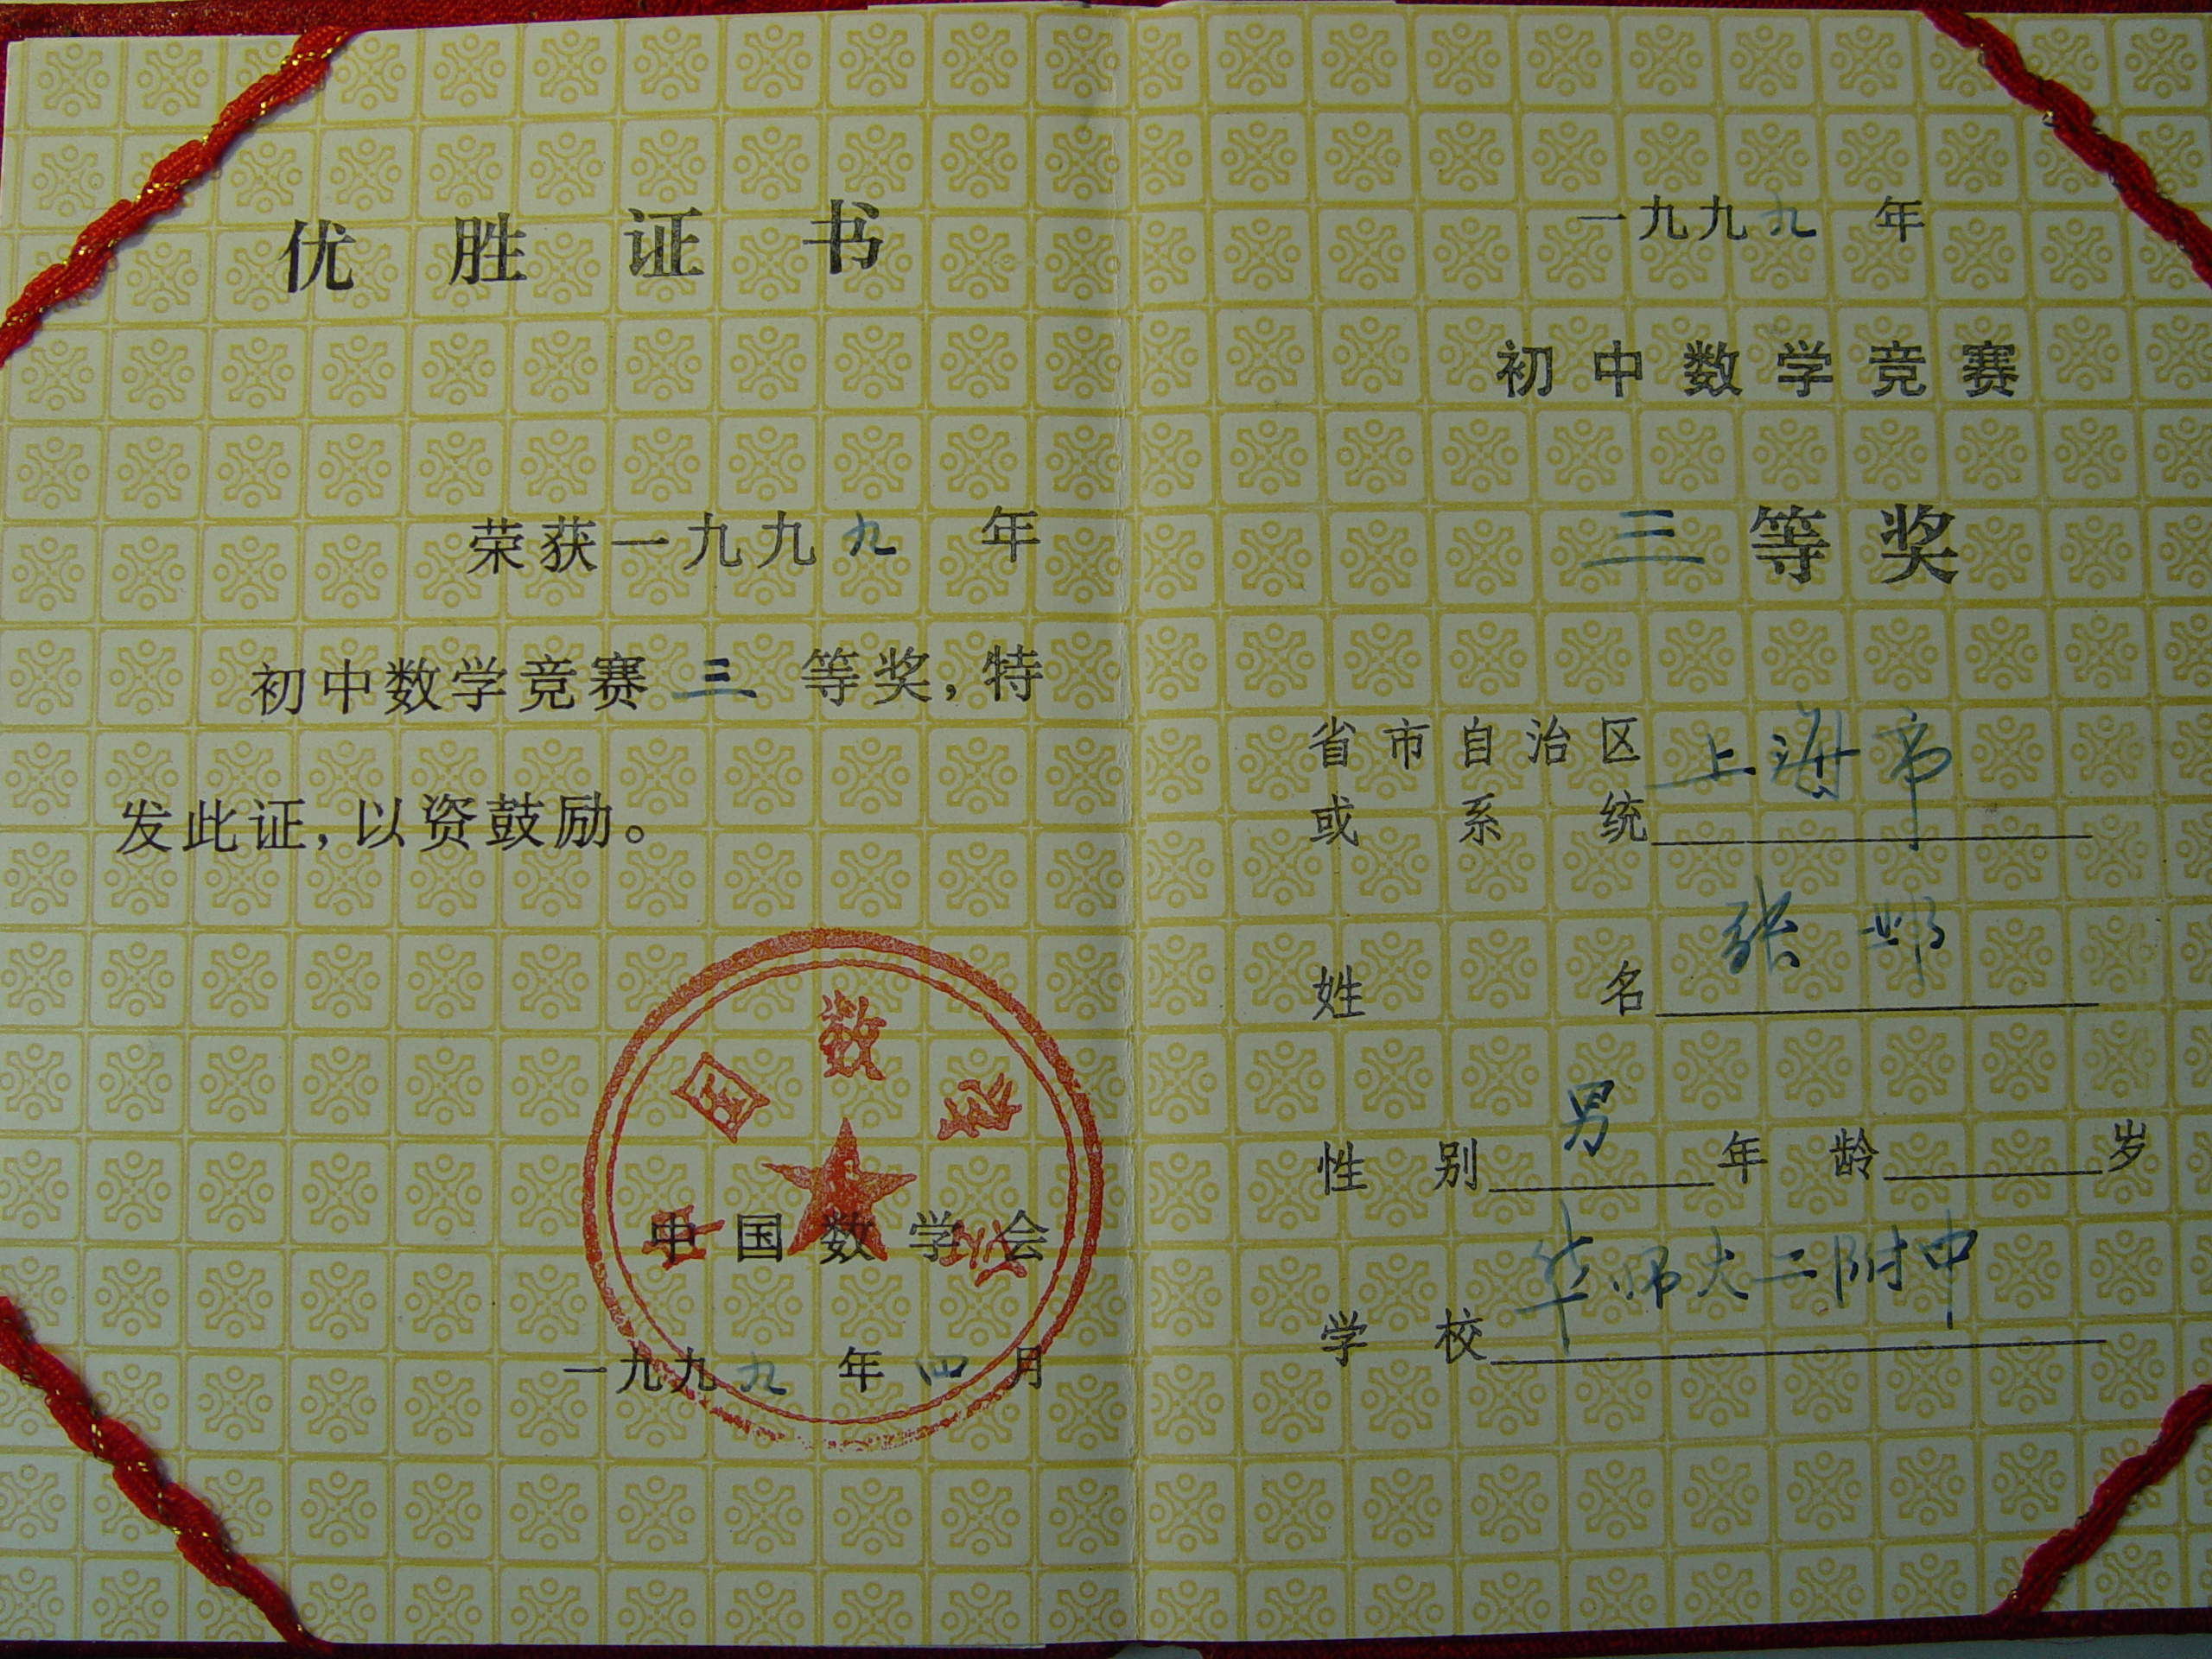 优胜证书
荣获一九九九年
初中数学竞赛三等奖，特
发此证，以资鼓励。
中国数学会
中国数学会
一九九九年四月
一九九九年
初中数学竞赛
三等奖
省市自治区
或系统 上海市
姓名 张
性别 男 年龄 岁
学校 华师大二附中